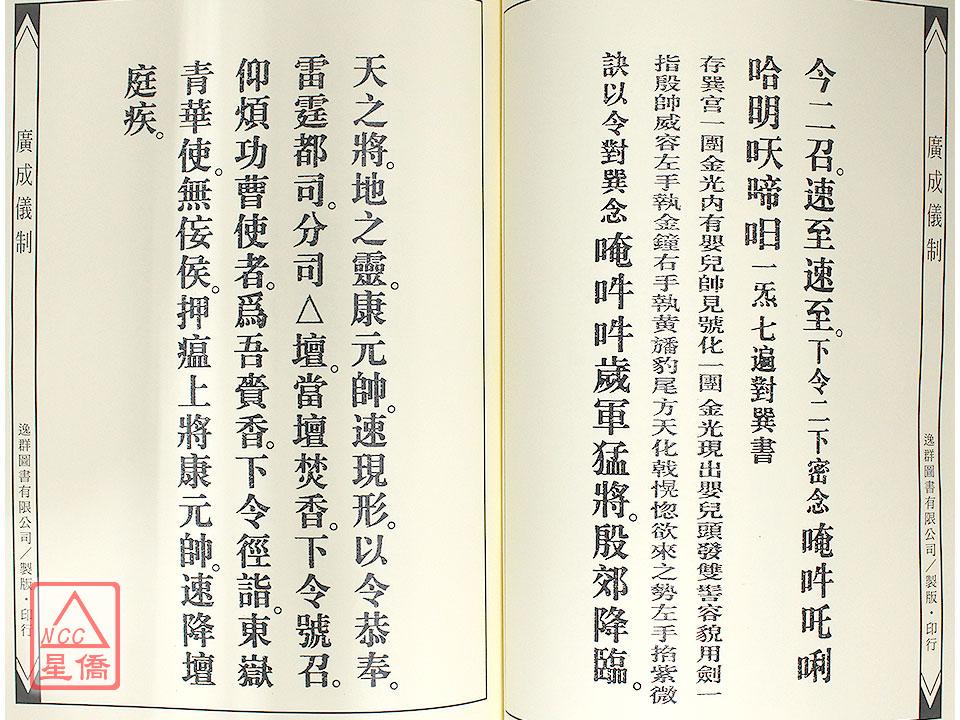 廣成儀制
逸群圖書有限公司／製版・印行
今二召。速至速至。下令二下密念唵吽吒唎
哈明呋啼呾一炁七遍對巽書
存巽宮一團金光內有嬰兒帥見號化一團金光現出嬰兒頭發雙髻容貌用劍一
指殷帥威容左手執金鐘右手執黃旛豹尾方天化戟愰惚欲來之勢左手掐紫微
訣以令對巽念唵吽吽歲軍猛將。殷郊降臨。
天之將。地之靈。康元帥。速現形。以令恭奉。
雷霆都司。分司△壇。當壇焚香。下令號召。
仰煩功曹使者。爲吾賫香。下令徑詣。東嶽
青華使。無侫侯。押瘟上將康元帥。速降壇
庭疾。
廣成儀制
逸群圖書有限公司／製版・印行
NCC
星僑